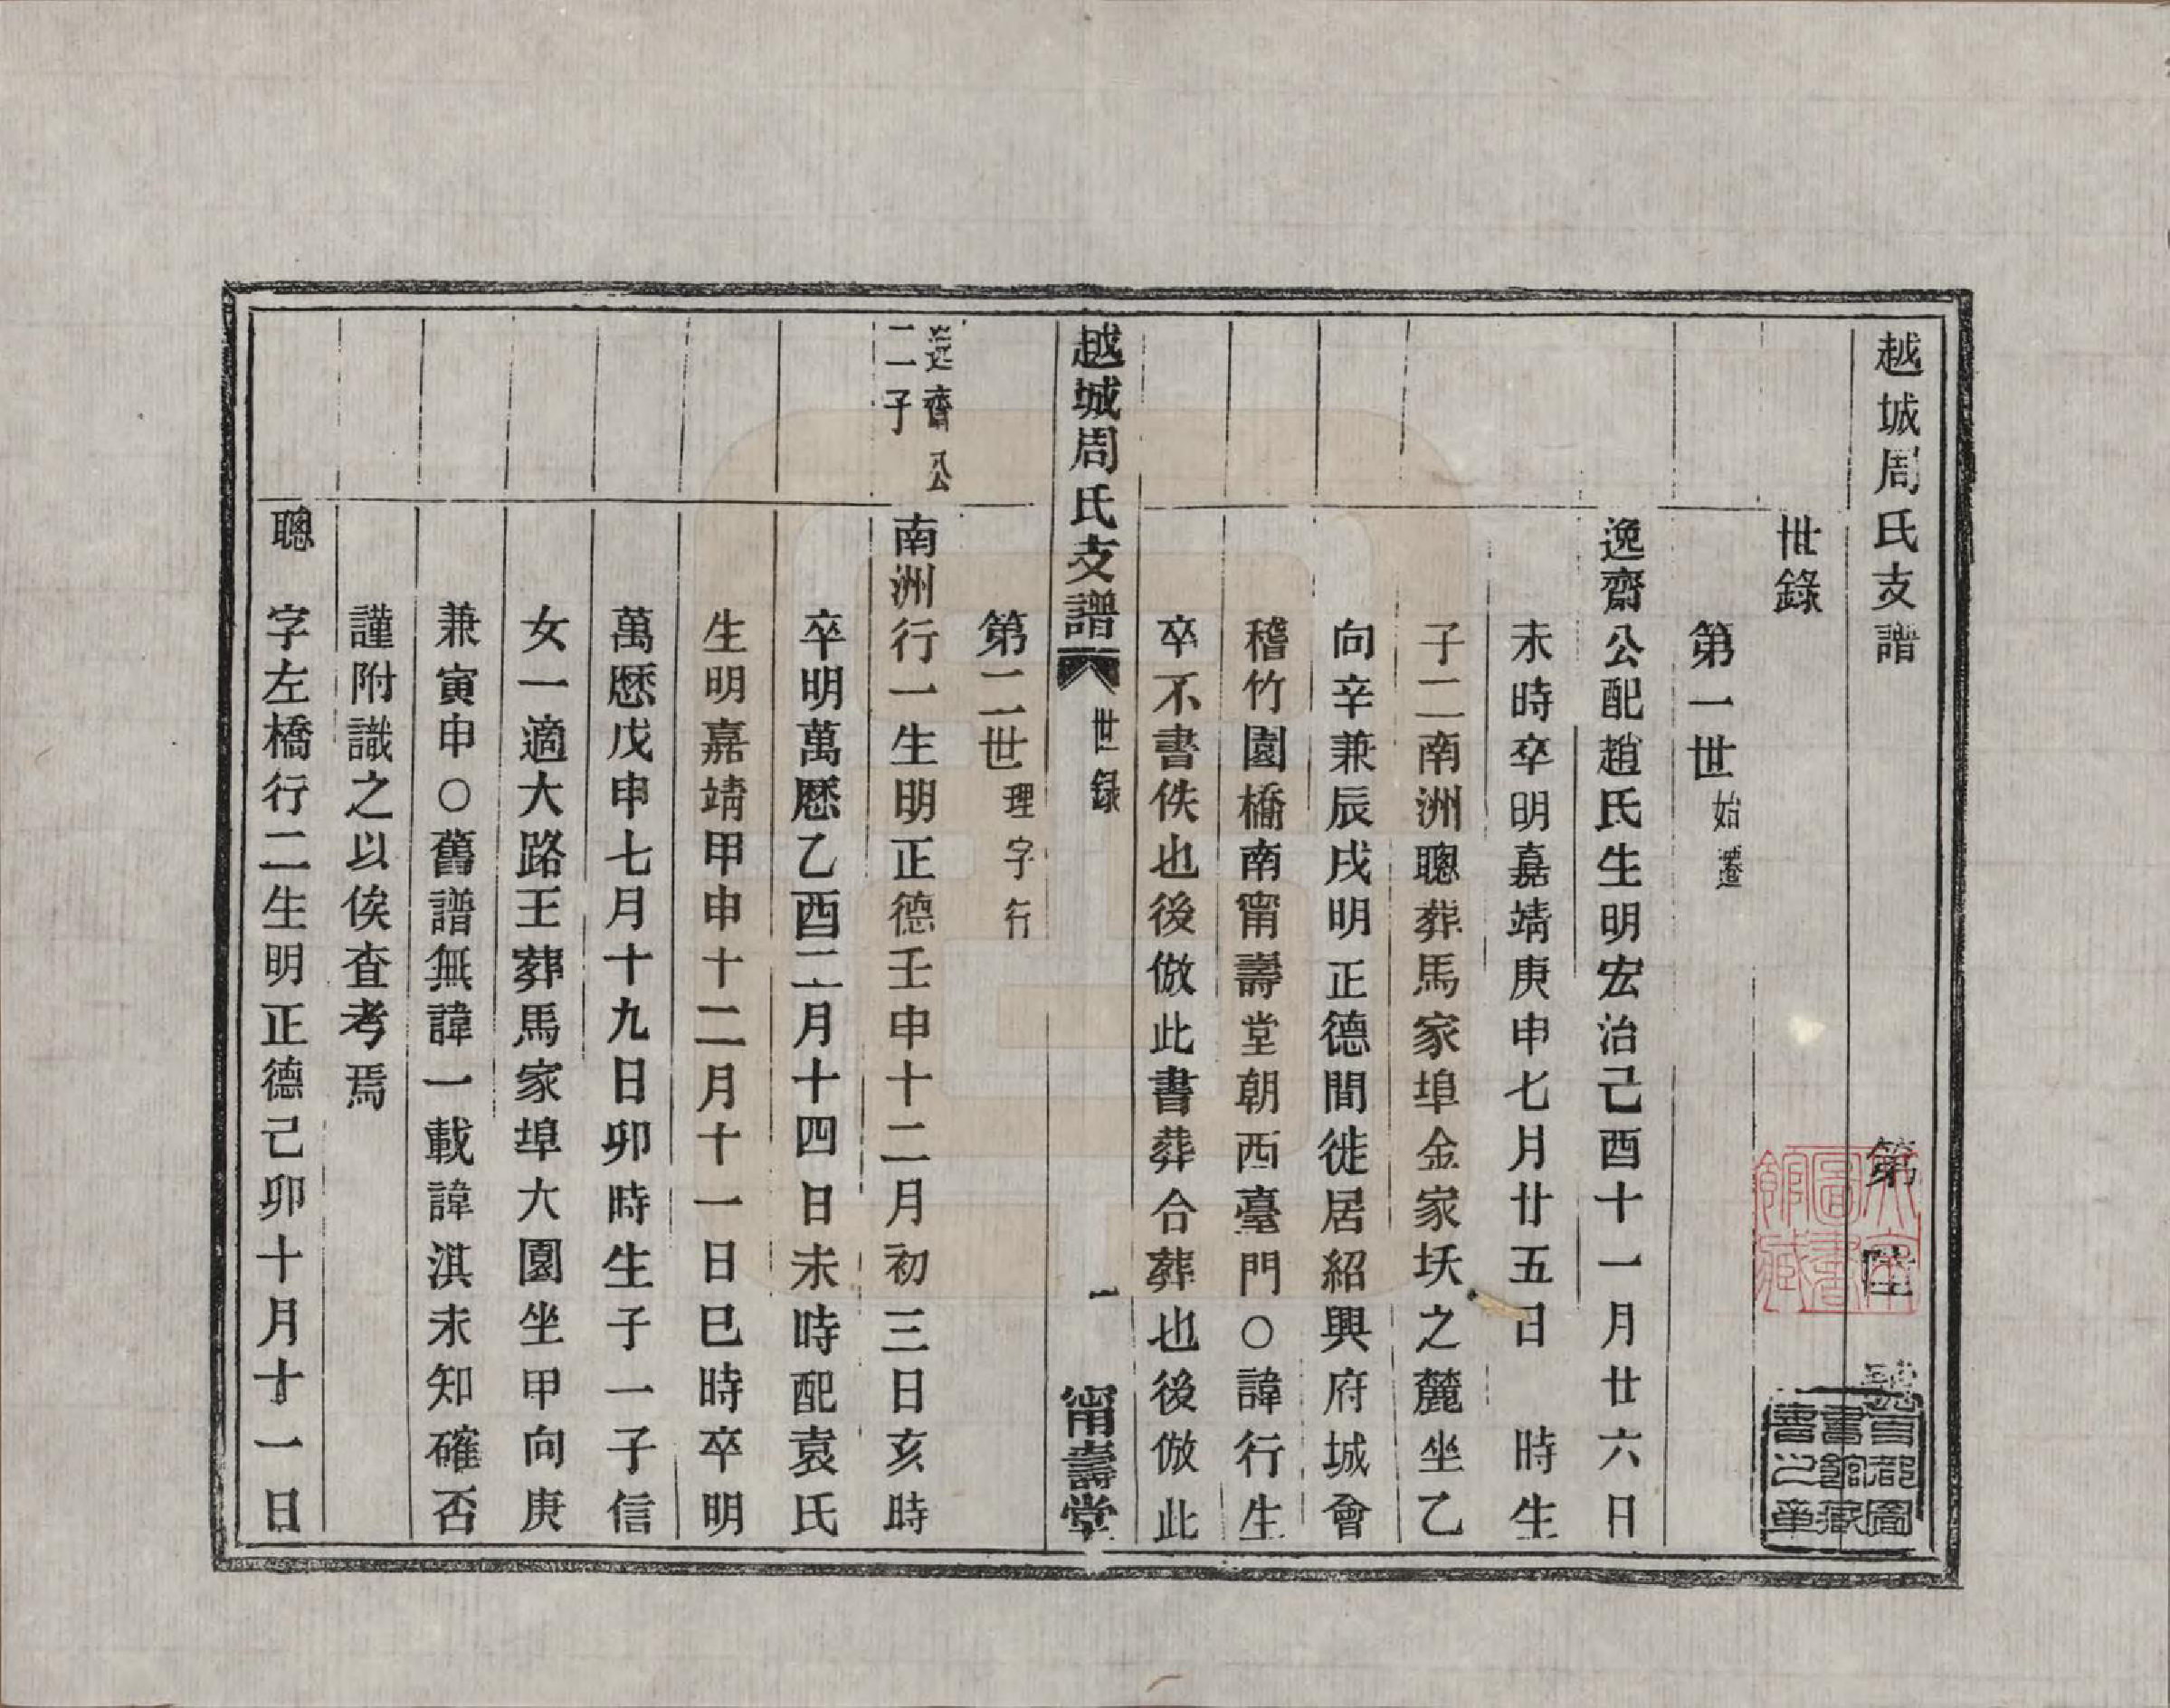 越城周氏支譜　第陸號
世錄
第一世始遷
逸齋公配趙氏生明宏治己酉十一月廿六日
未時卒明嘉靖庚申七月廿五日　時生
子二南洲聰葬馬家埠金家㘭之麓坐乙
向辛兼辰戌明正德間徙居紹興府城會
稽竹園橋南甯壽堂朝西臺門○諱行生
卒不書佚也後倣此書葬合葬也後倣此
越城周氏支譜　世錄　一　甯壽堂
第二世理字行
逸齋公
二子
南洲行一生明正德壬申十二月初三日亥時
卒明萬歷乙酉二月十四日未時配袁氏
生明嘉靖甲申十二月十一日巳時卒明
萬歷戊申七月十九日卯時生子一子信
女一適大路王葬馬家埠大園坐甲向庚
兼寅申○舊譜無諱一載諱淇未知確否
謹附識之以俟查考焉
聰　字左橋行二生明正德己卯十月十一日